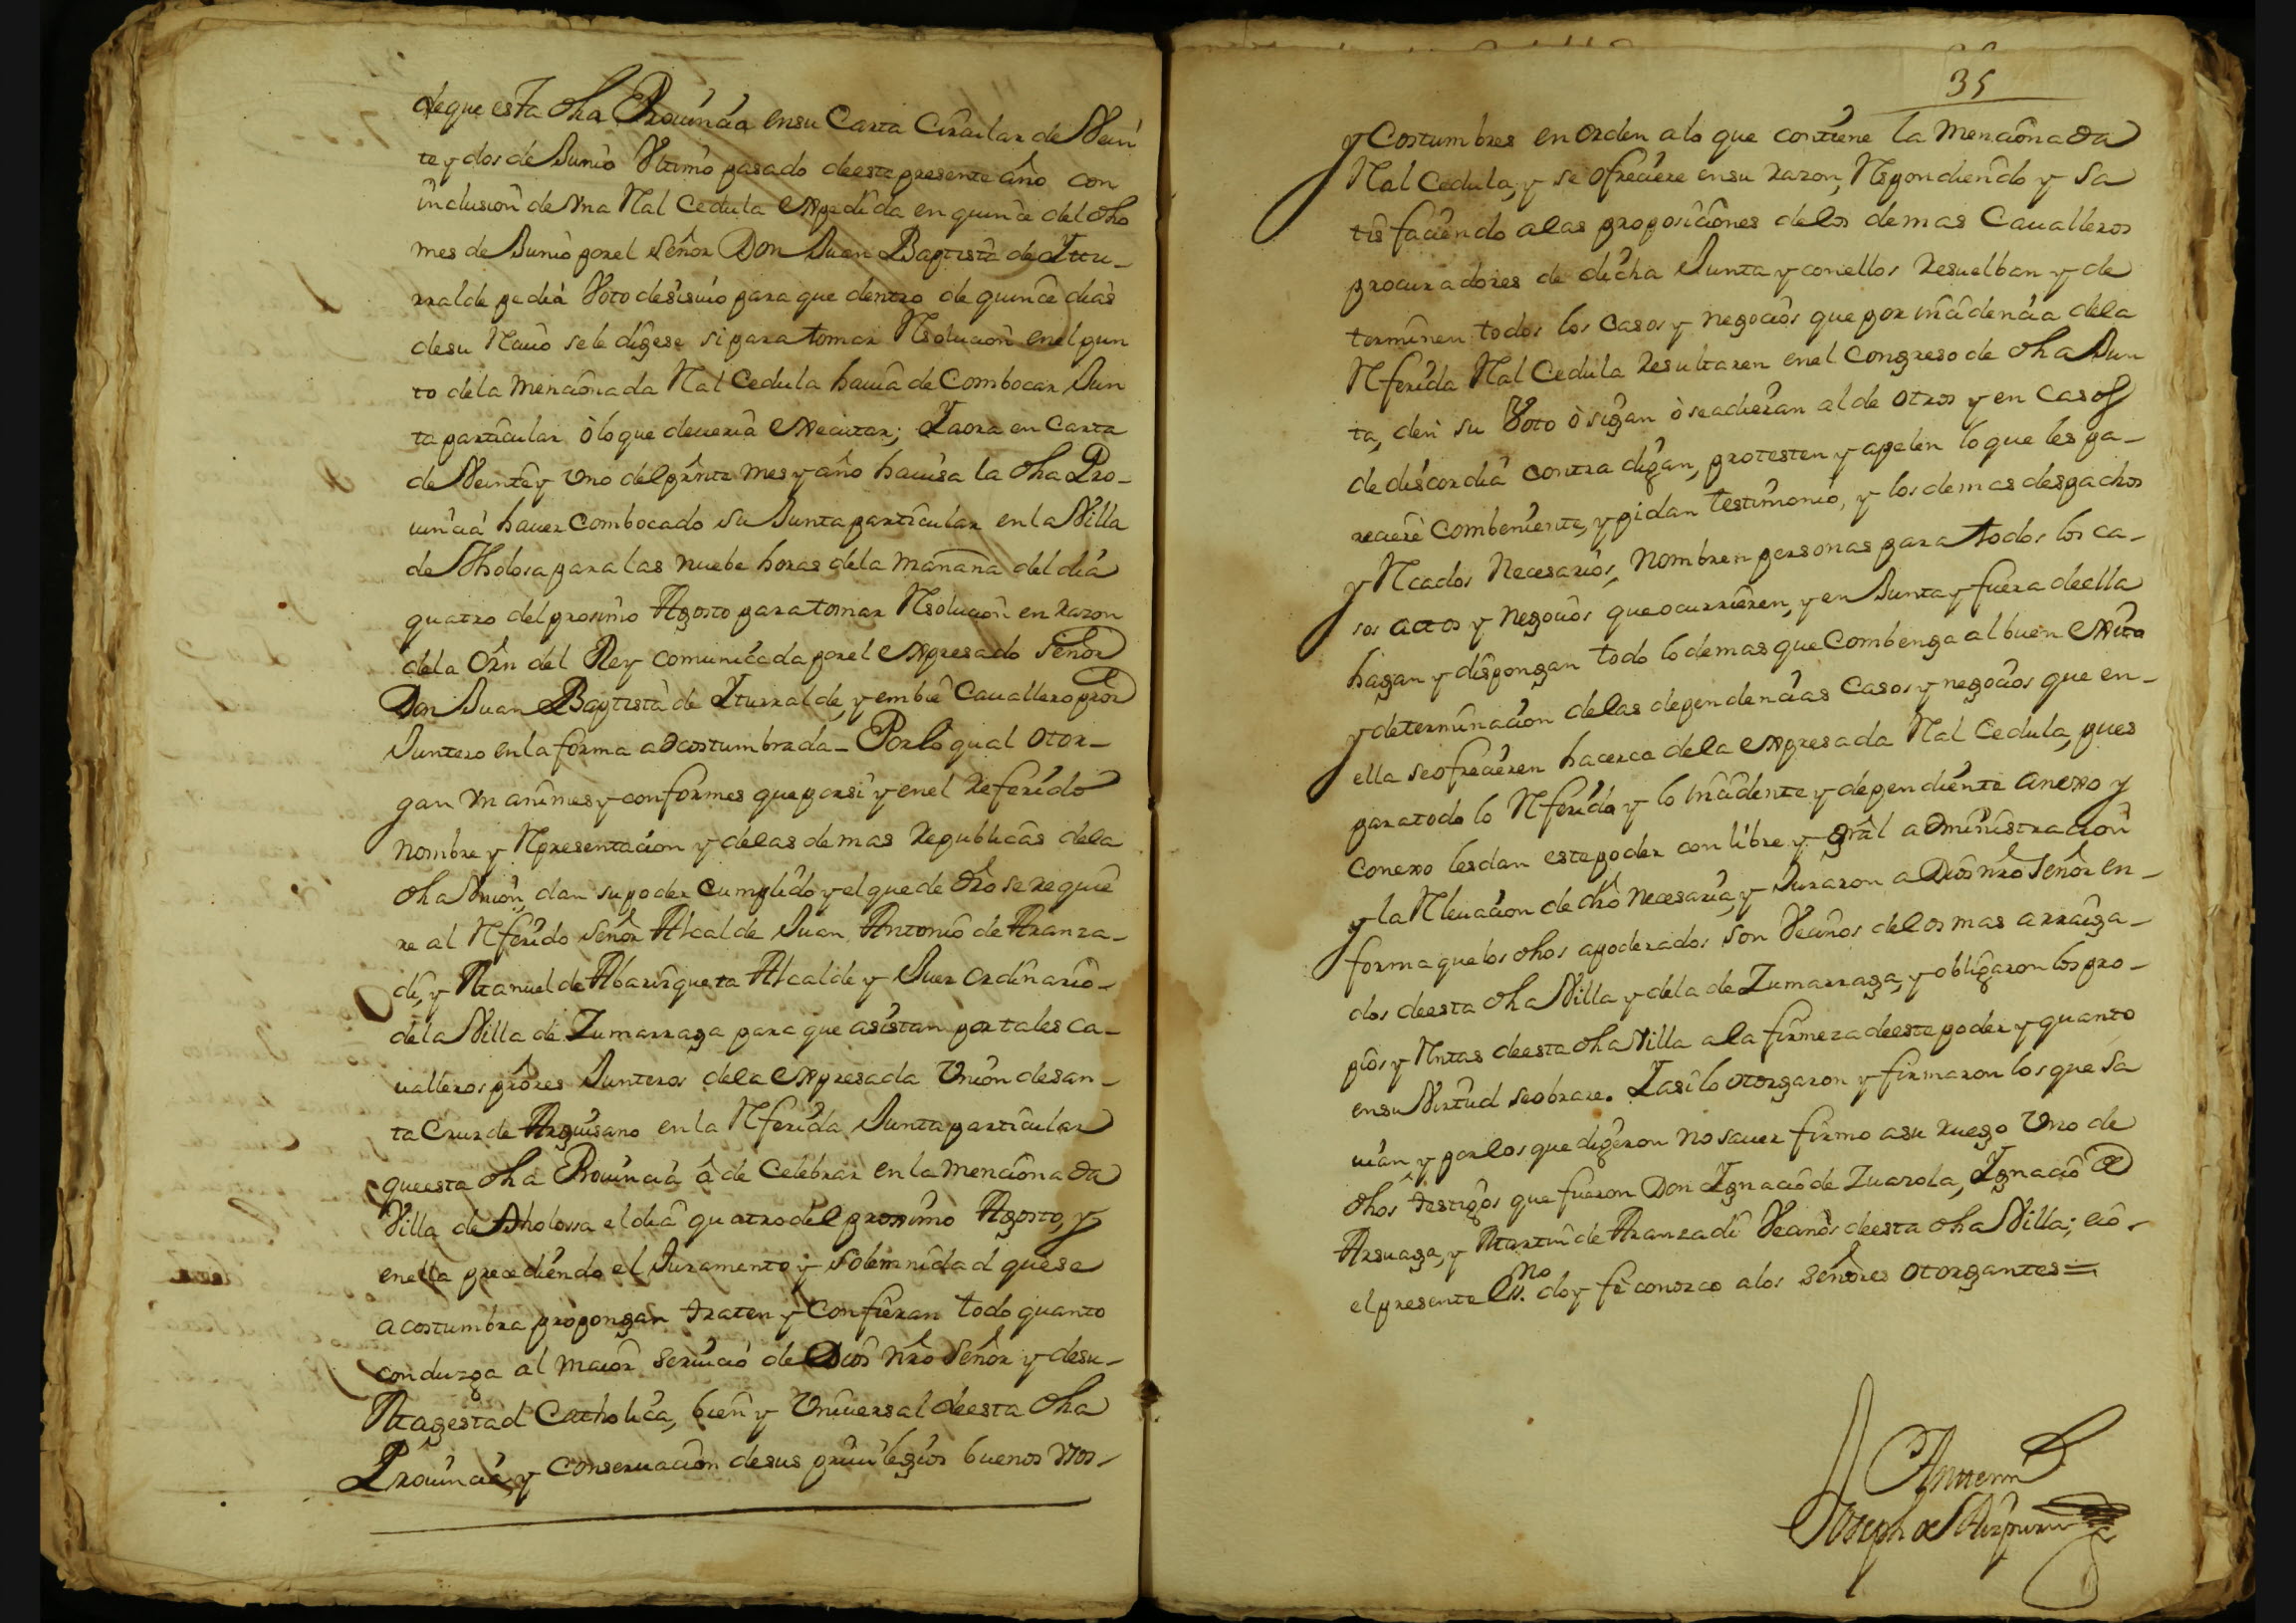 deque esta dha Prouincia ensu Carta Circular de Vein
te y dos de Junio Vltimo pasado deeste presente año con
inclusion de Vna Ral Cedula expedida en quince del dho
mes de Junio por el Señor Don Juan Baptista de Ytu-
rralde pedia Voto desisiuo para que dentro de quince dias
desu Reciuo sele digese si para tomar Resolucion enel pun
to dela mencionada Ral Cedula hauia de Combocar Jun
ta particular ò lo que deueria executar; Yaora en Carta
de Veinte y Vno del prnte mes y año hauisa la dha Pro-
uincia hauer Combocado su Junta particular en la Villa
de Tholosa para las nuebe horas dela mañana del dia
quatro del prosimo Agosto para tomar Resolucion en razon
dela Orn del Rey comunicada por el expresado Señor
Don Juan Baptista de Yturralde, y embie Cauallero pror
Juntero en la forma adcostumbrada- Por lo qual otor-
gan Vnanimes y conformes que por si y enel referido
nombre y Representacion y delas demas Republicas dela
dha Vnion, dan su poder Cumplido y el que de dro se requie
re al Referido Señor Alcalde Juan Antonio de Aranza-
di, y Manuel de Abarisqueta Alcalde y Juez ordinario-
dela Villa de Zumarraga para que asistan por tales ca-
ualleros prores Junteros dela expresada Vnion de san-
ta Cruz de Arguisano en la Referida Junta particular
que esta dha Prouincia à de Celebrar en la mencionada
Villa de Tholossa el dia quatro del proximo Agosto, y
enella precediendo el Juramento y solemnidad que se
acostumbra propongan traten y Confieran todo quanto
conduzga al maior seruicio de Dios nro Señor y desu-
Magestad Catholica, bien y Vniuersal deesta dha
Prouincia, y conseruacion desus priuilegios buenos Vsos-
35
y Costumbres en orden alo que contiene la mencionada
Ral Cedula, y se ofreciere ensu razon, Respondiendo y sa
tisfaciendo alas proposiciones delos demas Caualleros
procuradores de dicha Junta y conellos resuelban y de
terminen todos los Casos y negocios que por incidencia dela
Referida Ral Cedula resultaren enel Congreso de dha Jun
ta, den su Voto ò sigan ò se adieran al de otros y en Casos
de discordia contradigan, protesten y apelen lo que les pa-
reciere combeniente, y pidan testimonio, y los demas despachos
y Rcados necesarios, nombren personas para todos los ca-
sos actos y negocios que ocurrieren, y en Junta y fuera deella
hagan y dispongan todo lo demas que Combenga al buen exito
y determinacion delas dependencias Casos y negocios que en-
ella se ofrecieren hacerca dela expresada Ral Cedula, pues
para todo lo Referido y lo incidente y dependiente anexo y
conexo les dan este poder con libre y gral administracion
y la Releuacion de dro necesaria, y Juraron a Dios nro Señor en-
forma que los dhos apoderados son Vecinos delos mas arraiga-
dos deesta dha Villa y dela de Zumarraga, y obligaron los pro-
pios y Rntas deesta dha Villa a la firmeza deeste poder y quanto
ensu Virtud se obrare. Yasi lo otorgaron y firmaron los que sa
uian, y por los que digeron no sauer firmo asu ruego Vno de
dhos testigos que fueron Don Ygnacio de Zuazola, Ygnacio de
Arsuaga, y Martin de Aranzadi Vecinos deesta dha Villa; eio-
el presente Ess.no doy fe conozco alos señores otorgantes=
Antemi
Joseph de Aizpuru